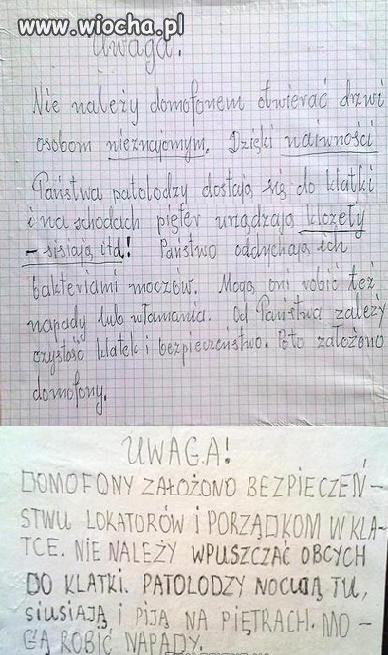 www.wiocha.pl
Uwaga.
Nie należy domofonem otwierać drzwi
osobom nieznajomym. Dzięki naiwności
Państwa patolodzy dostają się do klatki
i na schodach pięter urządzają klozety
– sisiają itd! Państwo oddychają ich
bakteriami moczów. Mogą oni robić też
napady lub włamania. Od Państwa zależy
czystość klatek i bezpieczeństwo. Po to założono
domofony.
UWAGA!
DOMOFONY ZAŁOŻONO BEZPIECZEŃ–
STWU LOKATORÓW I PORZĄDKOM W KLA–
TCE. NIE NALEŻY WPUSZCZAĆ OBCYCH
DO KLATKI. PATOLODZY NOCUJĄ TU,
SIUSIAJĄ I PIJĄ NA PIĘTRACH. MO–
GĄ ROBIĆ NAPADY.